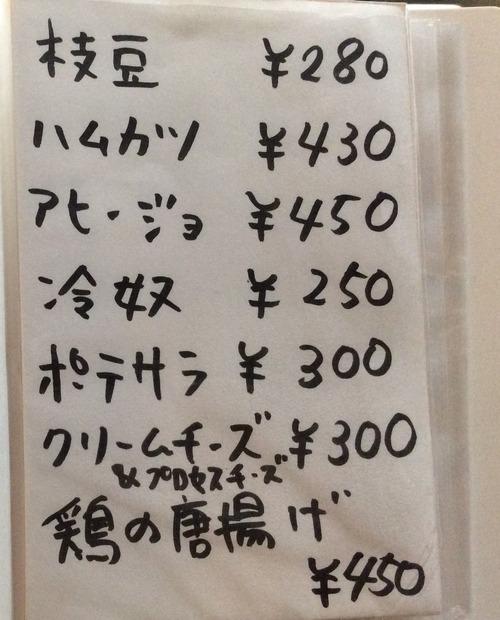 枝豆 ¥280
ハムカツ ¥430
アヒージョ ¥450
冷奴 ¥250
ポテサラ ¥300
クリームチーズ ¥300
&プロセスチーズ
鶏の唐揚げ
¥450